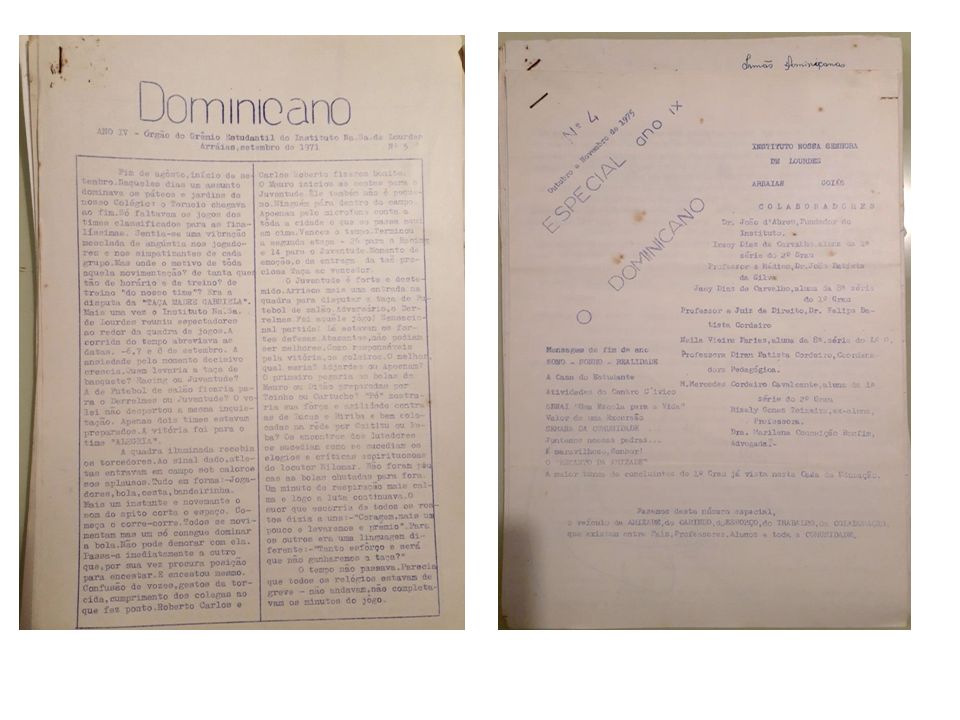 Dominicano
ANO IV - Orgão do Grêmio Estudantil do Instituto Na.Sa.de Lourdes
Arráias,setembro de 1971 Nº 5
Fim de agôsto,início de se-
tembro.Naqueles dias um assunto
dominava os páteos e jardins do
nosso Colégio: o Torneio chegava
ao fim.Só faltavam os jogos dos
times classificados para as fina-
líssimas. Sentia-se uma vibração
mesclada de angústia nos jogado-
res e nos simpatizantes de cada
grupo.Mas onde o motivo de tôda
aquela movimentação? de tanta ques
tão de horário e de treino? de
treino "do nosso time"? Era a
disputa da "TAÇA MADRE GABRIELA".
Mais uma vez o Instituto Na.Sa.
de Lourdes reuniu espectadores
ao redor da quadra de jogos.A
corrida do tempo abreviava as
datas. -6,7 e 8 de setembro. A
ansiedade pelo momento decisivo
crescia.Quem levaria a taça de
basquete? Racing ou Juventude?
A de Futebol de salão ficaria pa-
ra o Derrelmes ou Juventude? O vo-
lei não despertou a mesma inquie-
tação. Apenas dois times estavam
preparados.A vitória foi para o
time "ALEGRIA".
A quadra iluminada recebia
os torcedores.Ao sinal dado,atle-
tas entravam em campo sob calorosos
aplausos.Tudo em forma:-Joga-
dores,bola,cesta,bandeirinha.
Mais um instante e novamente o
som do apito corta o espaço. Co-
meça o corre-corre.Todos se movi-
mentam mas um só conegue dominar
a bola.Não pode demorar com ela.
Passa-a imediatamente a outro
que,por sua vez procura posição
para encestar. E encestou mesmo.
Confusão de vozes,gestos da tor-
cida,cumprimento dos colegas ao
que fez ponto.Roberto Carlos e
Carlos Roberto fizeram bonito.
O Mauro iniciou as cestas para a
Juventude.Ele também não é peque-
no.Ninguém pára dentro do campo.
Apoenam pelo microfone conta a
tôda a cidade o que se passa aqui
em cima.Vence o tempo.Terminou
a segunda etapa - 26 para a Racing
e 14 para o Juventude.Momento de
emoção,o da entrega da tão pre-
ciosa Taça ao vencedor.
O Juventude é forte e deste-
mido.Arrisca mais uma entrada na
quadra para disputar a taça de Fu-
tebol de salão.Adversário,o Der-
relmes.Foi aquele jôgo! Sensacio-
nal partida! Lá estavam os for-
tes defesas.Atacantes,não podiam
ser melhores.Como responsáveis
pela vitória,os goleiros.O melhor,
qual seria? Adjerdes ou Apoenam?
O primeiro pegaria as bolas de
Mauro ou Gitão preparadas por
Toinho ou Cartucho? "Pó" mostra-
ria sua força e agilidade contra
as de Lucas e Biriba e bem colo-
cadas na rêde por Cxitiu ou Pe-
ba? Os encontros dos lutadores
se sucediam como se sucediam os
elogios e críticas espirituosas
do locutor Nilomar. Não foram pou
cas as bolas chutadas para fora.
Um minuto de respiração mais cal-
ma e logo a luta continuava.O
suor que escorria de todos os ros-
tos dizia a uns:-"Coragem,mais um
pouco e levaremos o prêmio".Para
os outros era uma linguagem di-
ferente:-"Tanto esforço e será
que não ganharemos a taça?"
O tempo não passava.Parecia
que todos os relógios estavam de
greve - não andavam,não completa-
vam os minutos do jôgo.
Irmãs Dominicanas
Nº 4
Outubro e Novembro de 1975
ESPECIAL ano IX
O DOMINICANO
INSTITUTO NOSSA SENHORA
DE LOURDES
ARRAIAS GOIÁS
COLABORADORES
Dr. João d'Abreu,Fundador do
Instituto.
Irany Dias de Carvalho,aluna da 1ª
série do 2º Grau
Professor e Médico,Dr.João Batista
da Silva
Jacy Dias de Carvalho,aluna da 8ª série
do 1º Grau
Professor e Juiz de Direito,Dr. Felipe Ba-
tista Cordeiro
Neila Vieira Farias,aluna da 8ª.série do 1º G.
Professora Diran Batista Cordeiro,Coordena-
dora Pedagógica.
M.Mercedes Cordeiro Cavalcante,aluna da 1ª
série do 2º Grau
Risely Gomes Teixeira,ex-aluna,
Professora.
Dra. Marilena Conceição Bonfim,
Advogada.
Mensagem de fim de ano
SOMO - SONHO - REALIDADE
A Casa do Estudante
Atividades do Centro Cívico
SENAI "Uma Escola para a Vida"
Valor de uma Excursão
SEMANA DA COMUNIDADE
Juntemos nossas pedras...
É maravilhoso,Senhor!
O "RECANTO DA AMIZADE"
A maior turma de concluintes do 1º Grau já vista nesta Casa de Educação.
Fazemos deste número especial,
o veículo da AMIZADE,do CARINHO,do ESFORÇO,do TRABALHO,da COLABORAÇÃO,
que existem entre Pais,Professores,Alunos e toda a COMUNIDADE.